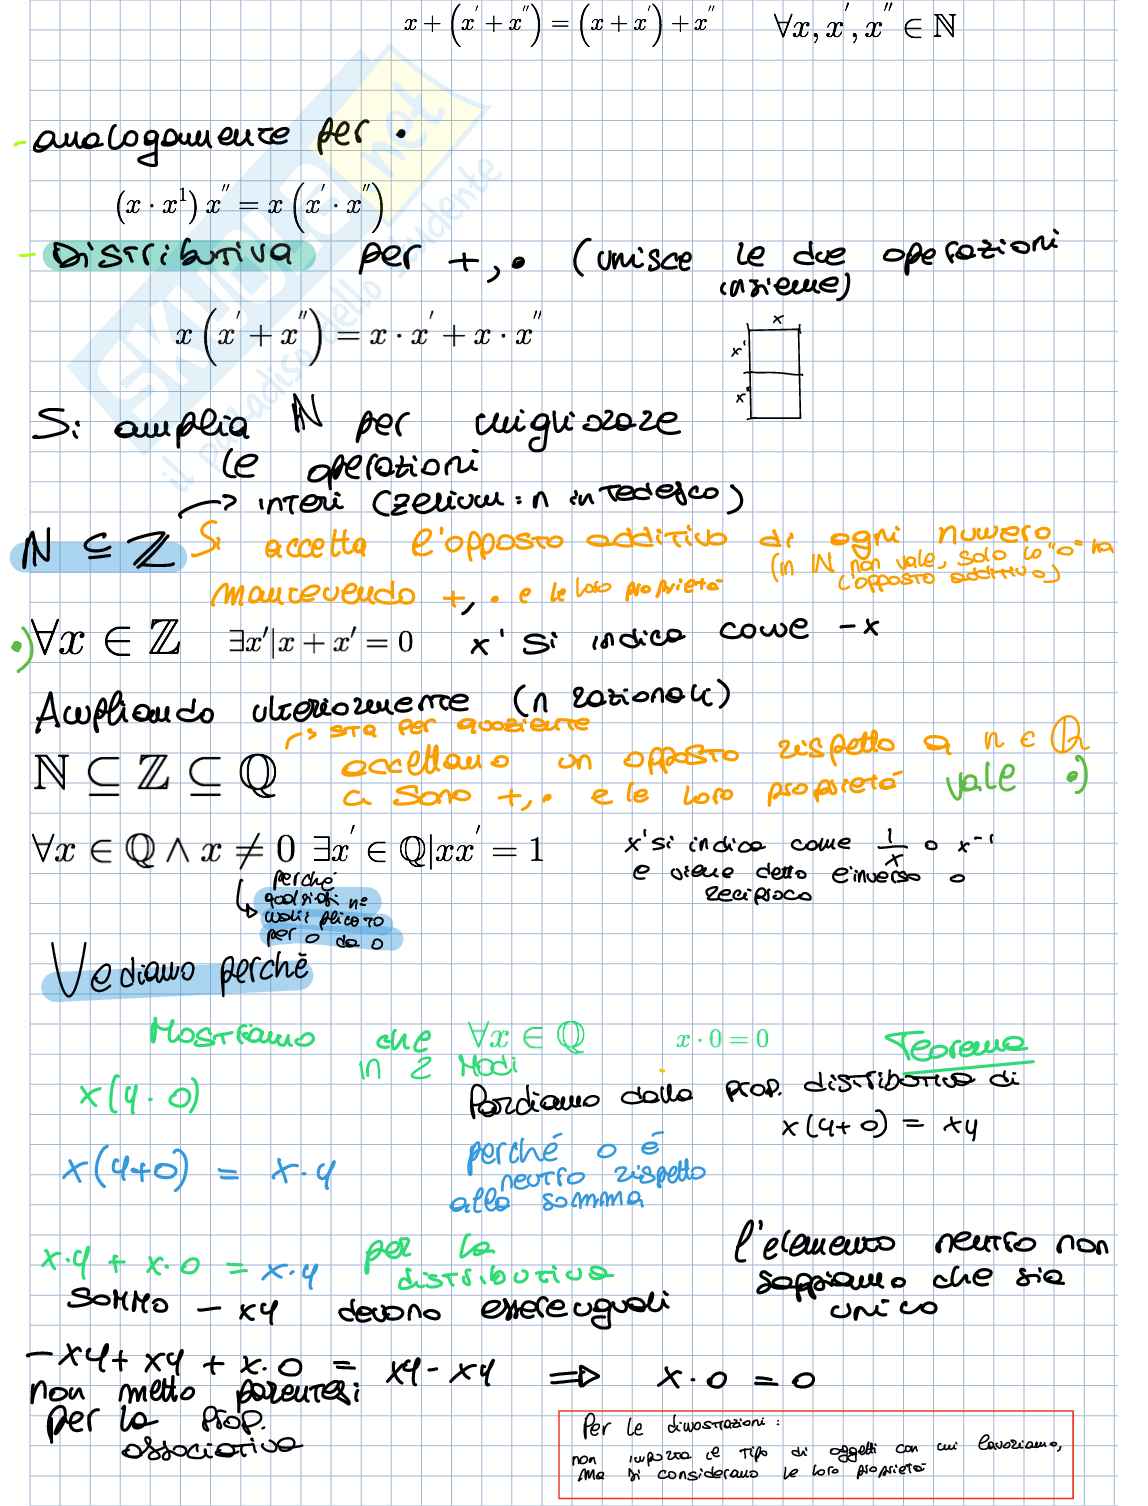 x + (x' + x'') = (x + x') + x'' ∀x, x', x'' ∈ ℕ
- analogamente per •
(x · x¹) x'' = x (x' · x'')
- Distributiva per +, • (unisce le due operazioni
insieme)
x (x' + x'') = x · x' + x · x''
x
x'
x''
Si amplia ℕ per migliorare
le operazioni
→ interi (zelium: n in Tedesco)
ℕ ⊆ ℤ Si accetta l'opposto additivo di ogni numero
(in ℕ non vale, solo lo "0" ha
l'opposto additivo)
mantevendo +, • e le loro proprietà
•) ∀x ∈ ℤ ∃x'|x + x' = 0 x' si indica come -x
Ampliando ulteriormente (n razionali)
→ sta per quoziente
ℕ ⊆ ℤ ⊆ ℚ accettano un opposto rispetto a n ∈ ℚ
ci sono +, • e le loro proprietà vale •)
∀x ∈ ℚ ∧ x ≠ 0 ∃x' ∈ ℚ|xx' = 1 x' si indica come 1/x o x⁻¹
e viene detto l'inverso o
reciproco
perché
qualsiasi n°
moltiplicato
per 0 da 0
Vediamo perchè
Mostriamo che ∀x ∈ ℚ x · 0 = 0 Teorema
in 2 Modi
x(y · 0) Pardiamo dalla prop. distributiva di
x(y + 0) = xy
x(y+0) = x·y perché 0 é
neutro rispetto
alla somma
x·y + x·0 = x·y per la
distributiva
l'elemento neutro non
sappiamo che sia
unico
sommo - xy devono essere uguali
-xy + xy + x·0 = xy - xy ⇒ x·0 = 0
non metto parentesi
per la prop.
associativa
Per le dimostrazioni:
non importa il tipo di oggetti con cui lavoriamo,
ma si considerano le loro proprietà
SKUOLA.net
il paradiso dello studente